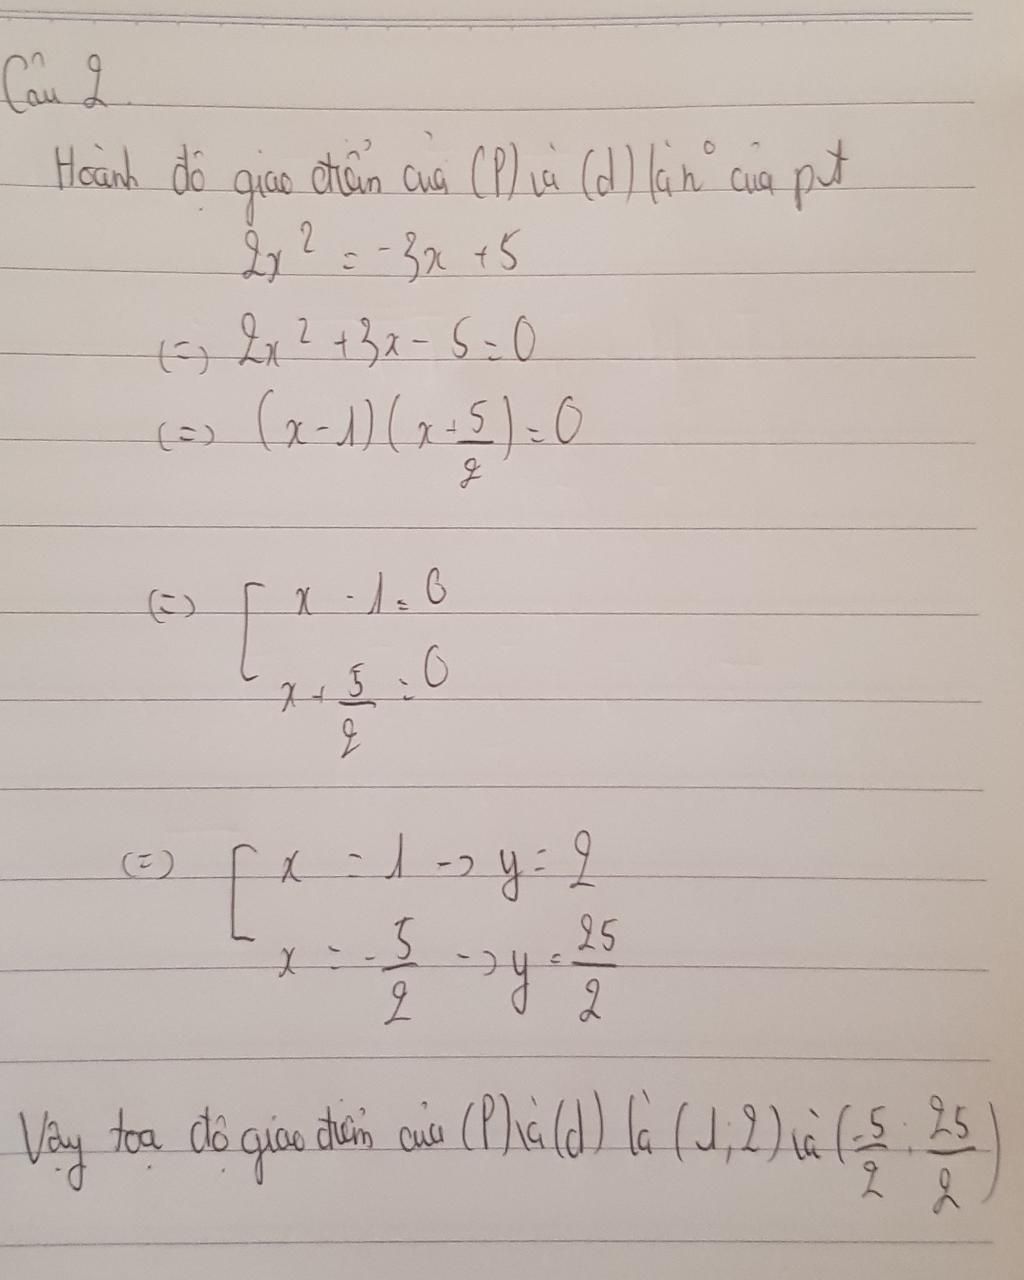 Câu 2
Hoành độ giao điểm của (P) và (d) là n° của pt
2x² = -3x + 5
(=) 2x² + 3x - 5 = 0
(=) (x - 1)(x + 5/2) = 0
(=) [ x - 1 = 0
x + 5/2 = 0
(=) [ x = 1 -> y = 2
x = -5/2 -> y = 25/2
Vậy toạ độ giao điểm của (P) và (d) là (1; 2) và (-5/2; 25/2)